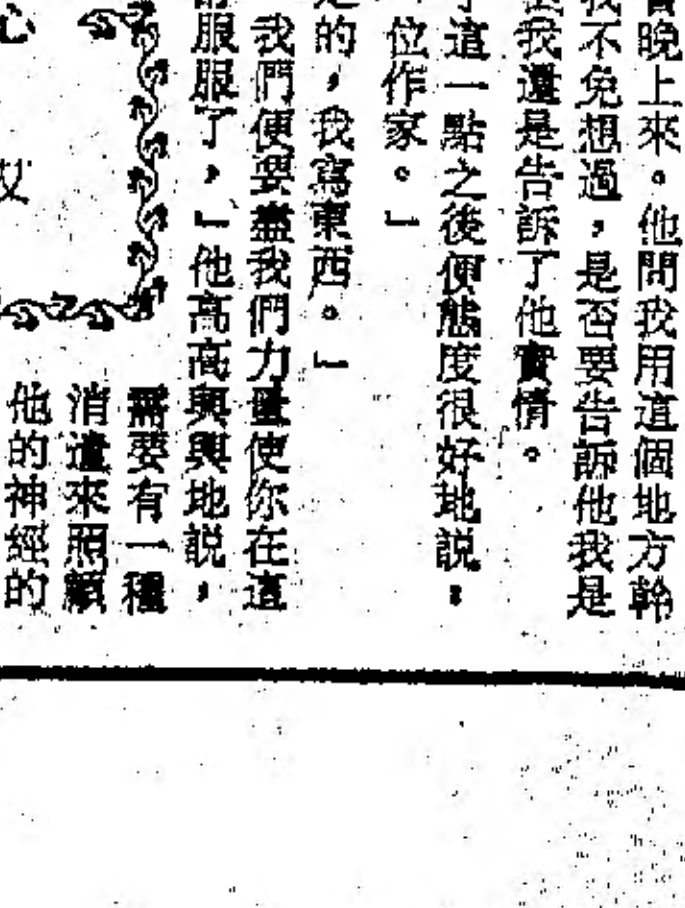 會晚上來。他問我用這個地方幹
我不免想過，是否要告訴他我是
我還是告訴了他實情。
了這一點之後便態度很好地説：
位作家。」
的，我寫東西。」
我們便要盡我們力量使你在這
服服了，」他高高興興地説，
需要有一種
消遣來照顧
他的神經的
心
艾